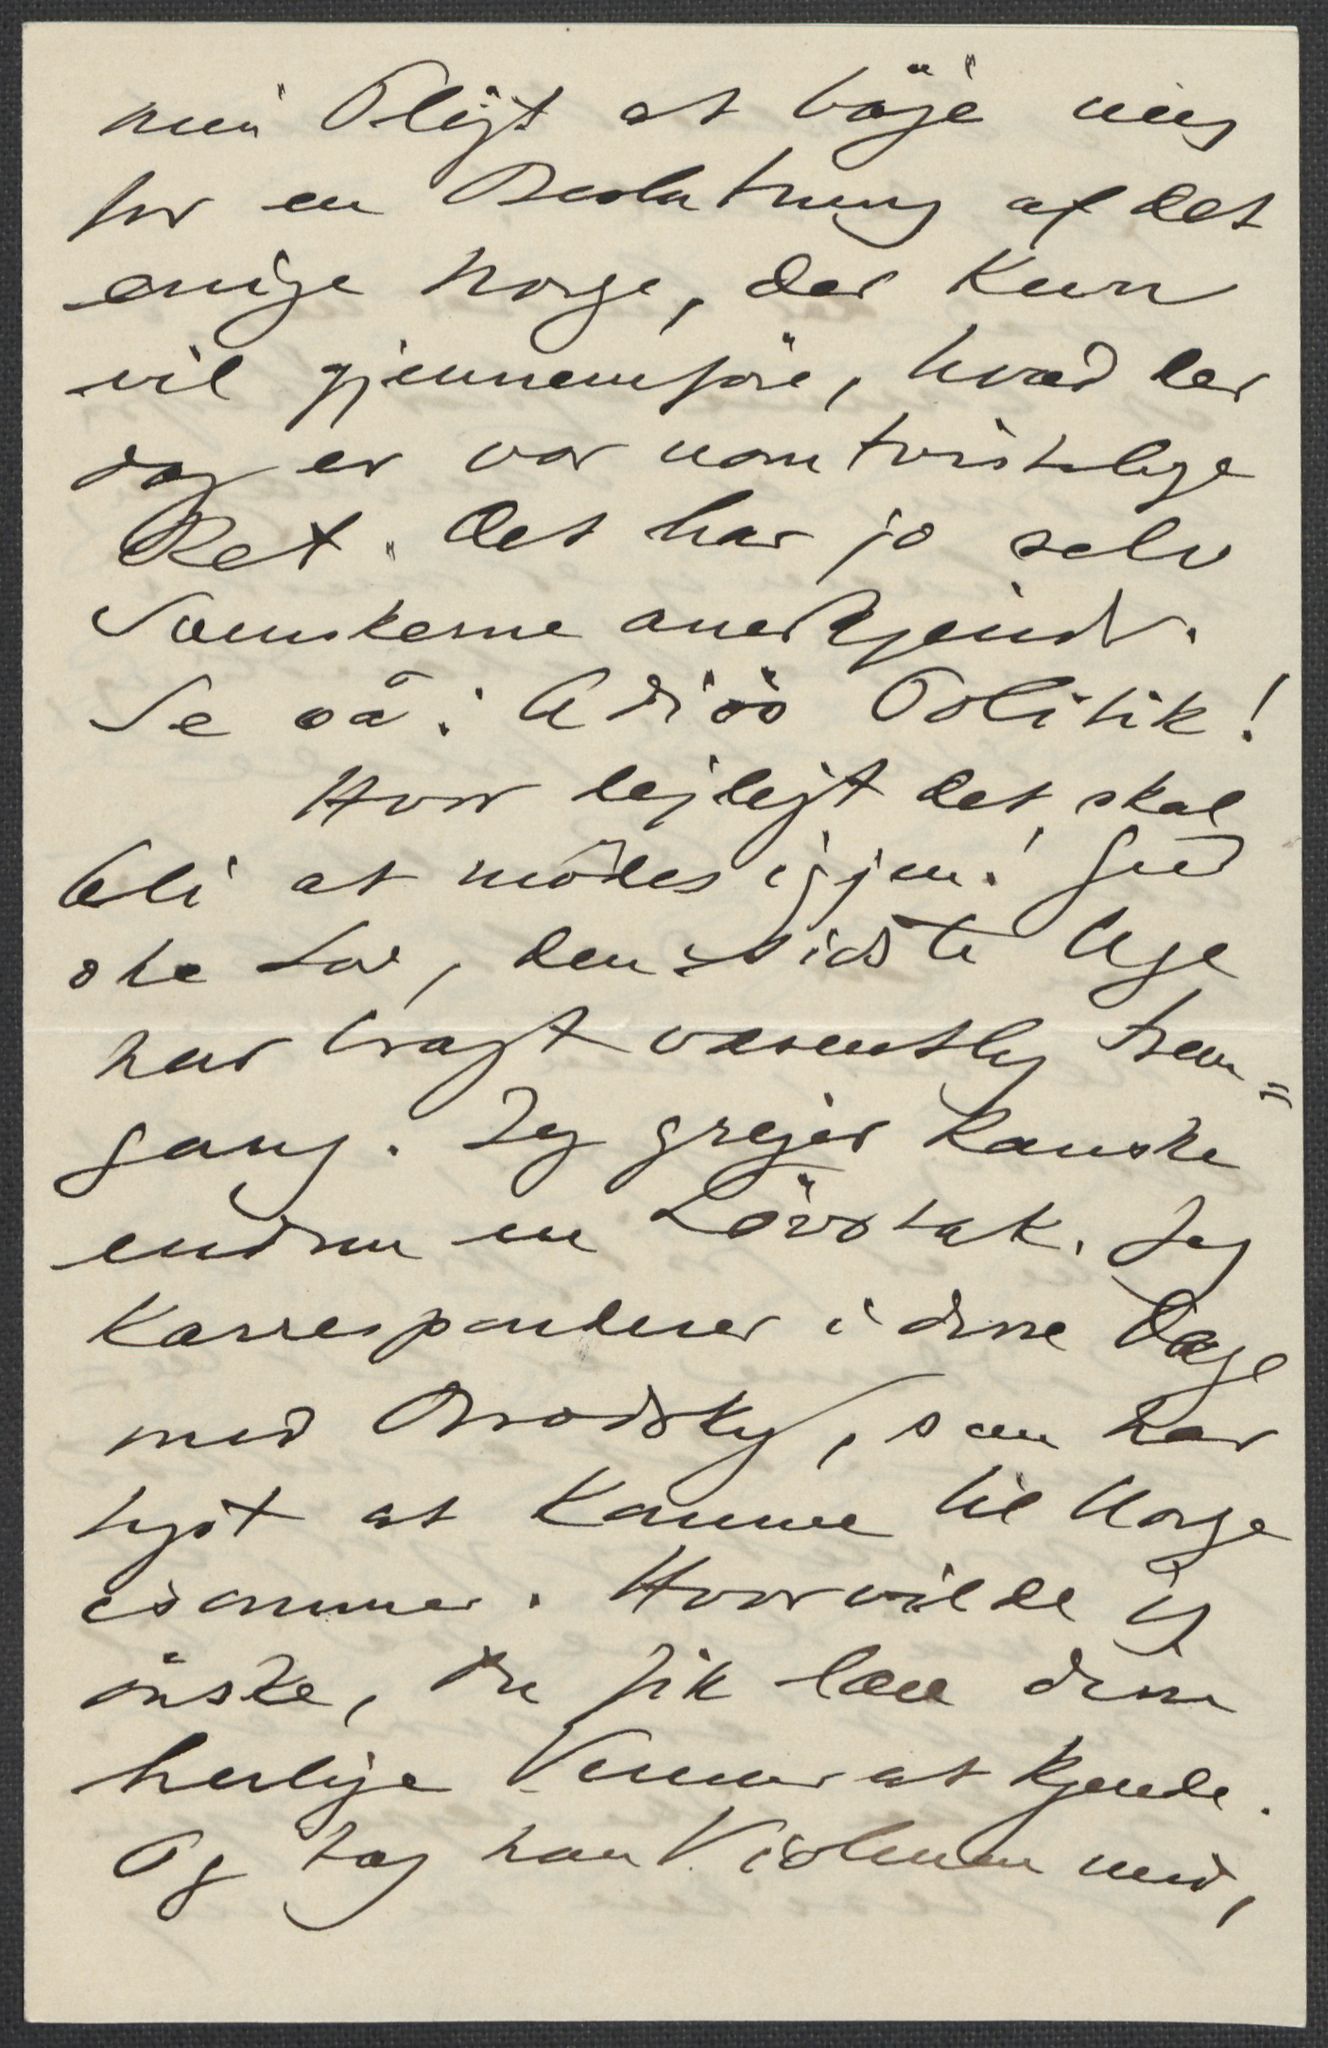 min Pligt at böje mig
for en Beslutning af det
enige Norge, der kun
vil gjennemføre, hvad der
dog er vor uomtvistelige
Ret. Det har jo selv
Svenskerne anerkjendt.
Se så: Adiöö Politik!
Hvor dejligt det skal
bli at mödes igjen! Gud
ske Lov, den sidste Uge
har bragt væsentlig Frem=
gang. Jeg grejer kanske
endnu en Løvstak. Jeg
korresponderer i disse Dage
med Brodsky, som har
lyst at komme til Norge
isommer. Hvor vilde jeg
önske, du fik lære disse
herlige Venner at kjende.
Og tog han Violinen med,